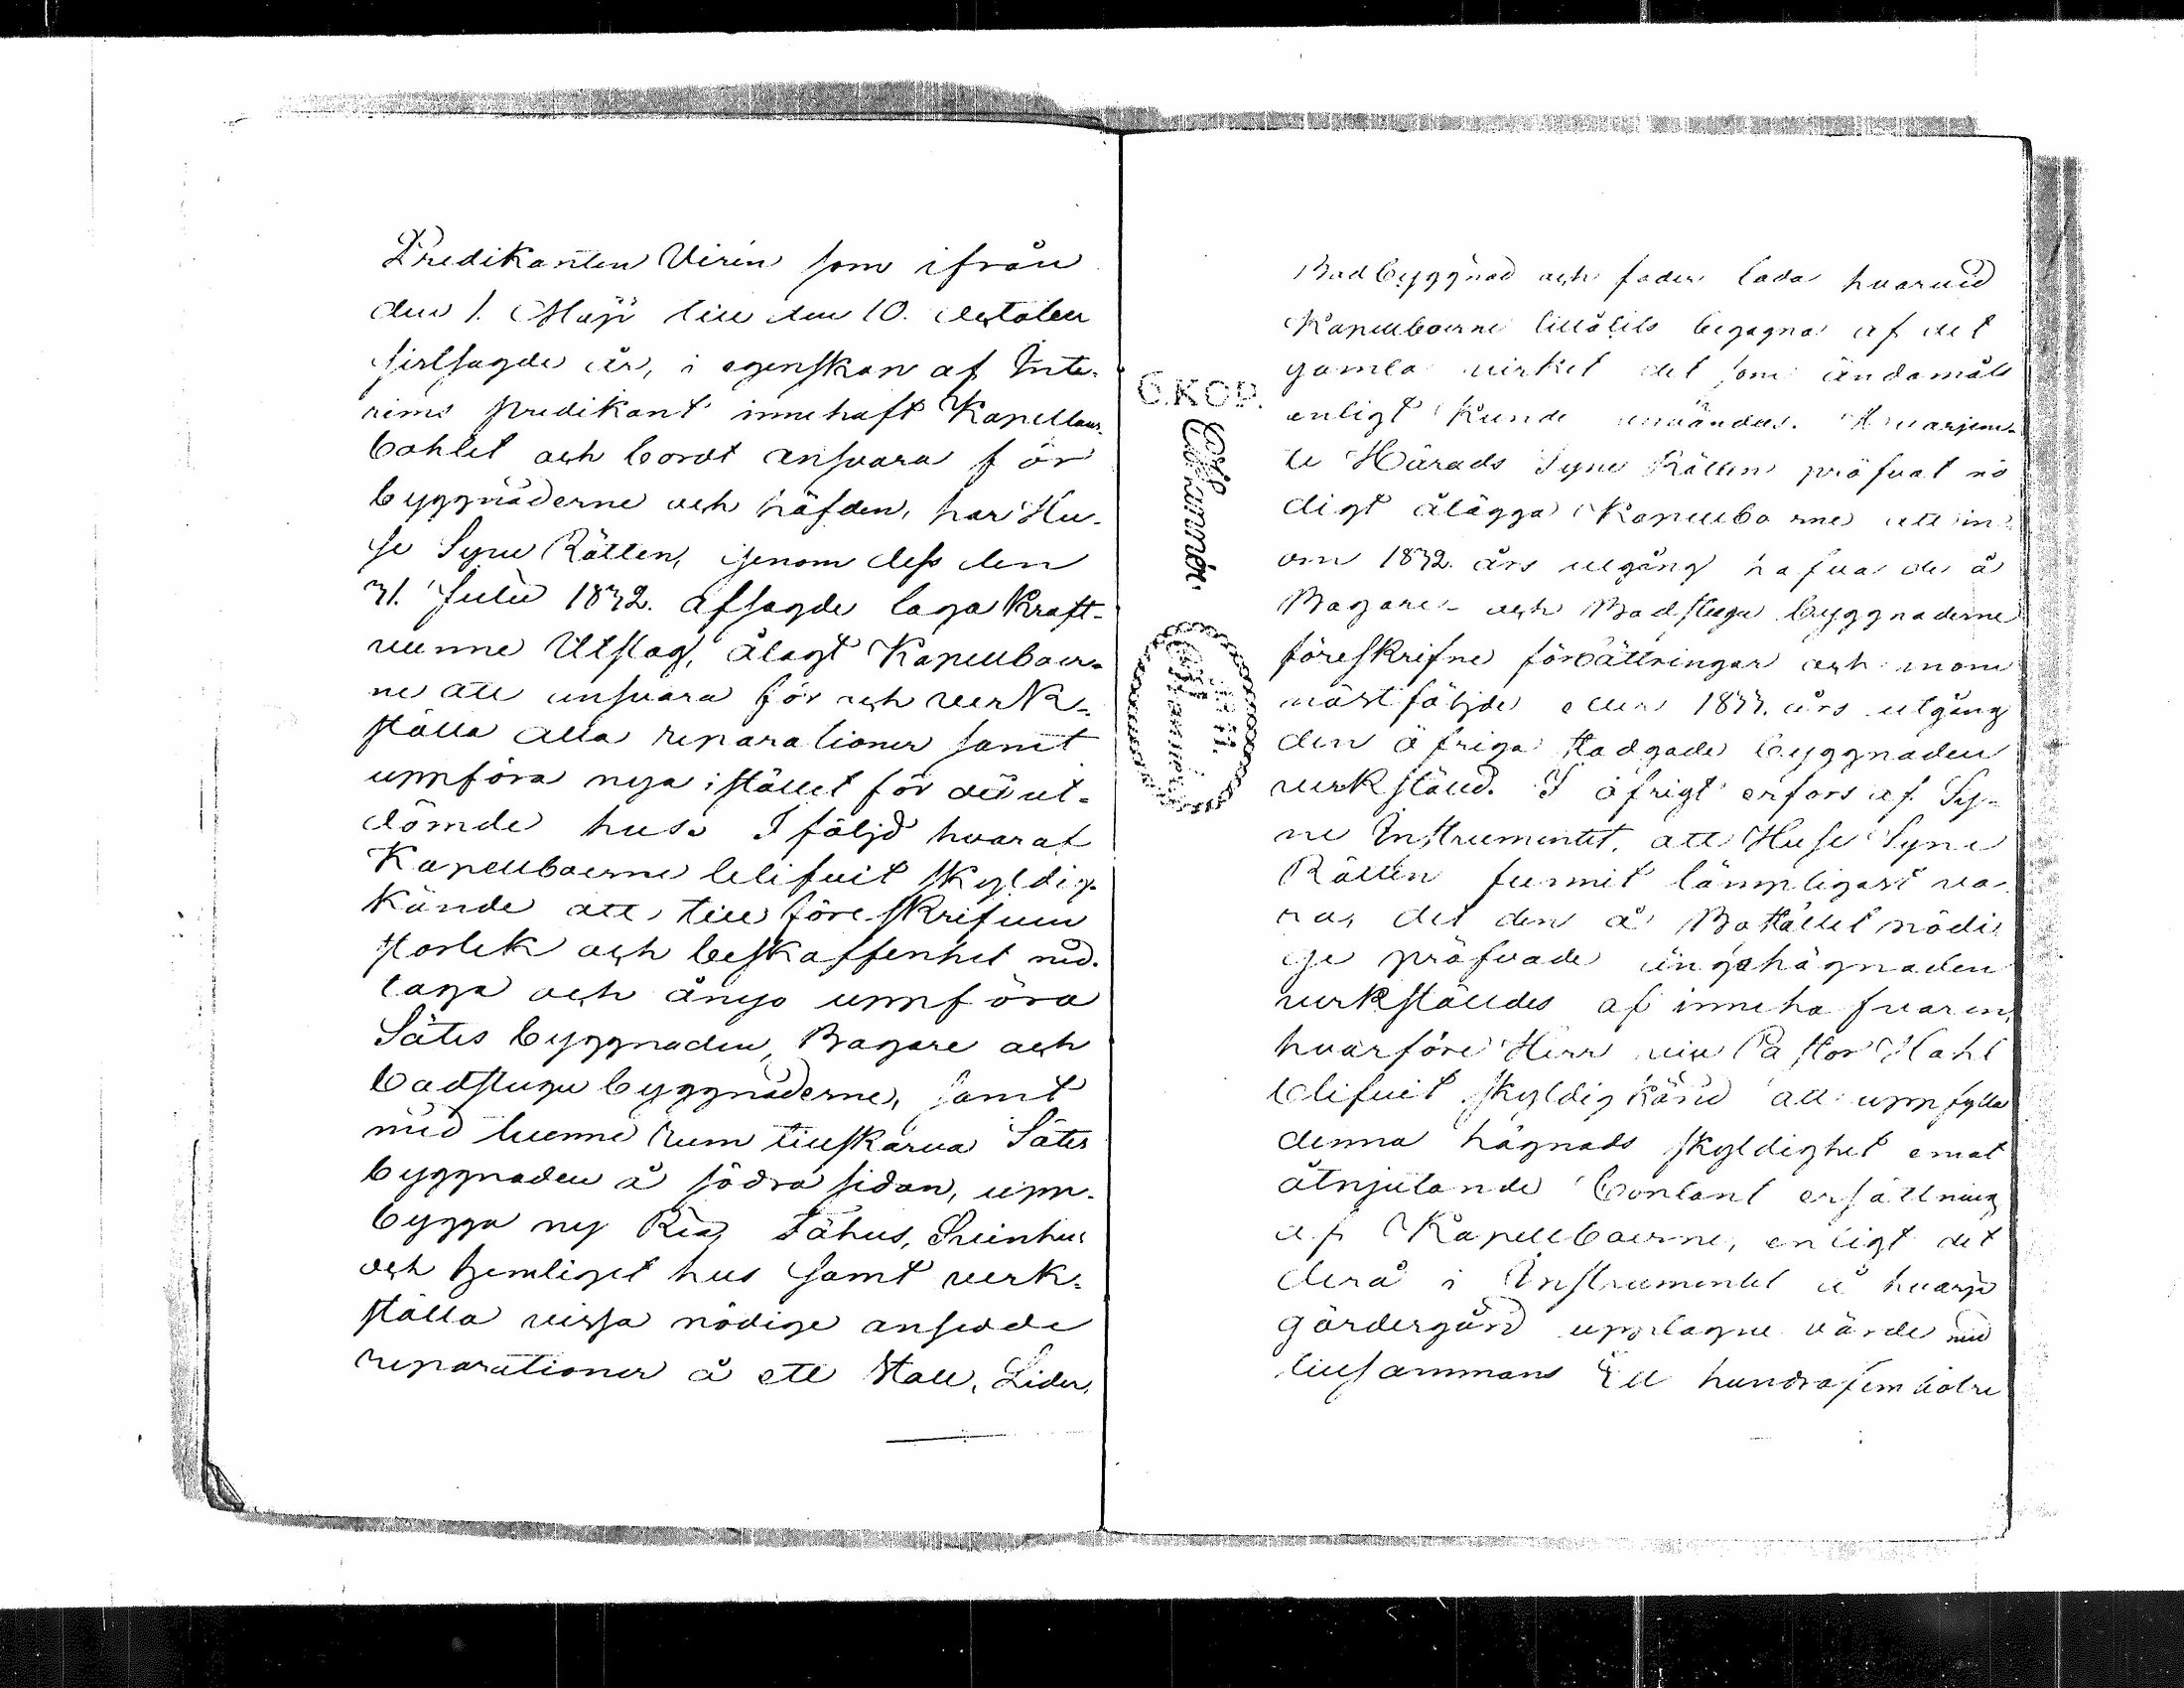 Predikanten Virén som ifrån
den 1. Maji till den 10. October
sistsagde år, i egenskap af Inte-
rims predikant innehaft Kapellans-
bohlet och bordt ansvara för
byggnaderne och häfden, har Hu-
se Syne Rätten, genom dess den
31. Julii 1832. afsagde laga kraft-
vunne Utslag, ålagt Kapellboer-
ne att ansvara för och verk-
ställa alla reparationer samt
uppföra nya i stället för de ut-
dömde hus. I följd hvaraf
Kapellboerne blifvit skyldig
kände att till föreskrifven
storlek och beskaffenhet ned-
taga och ånyo uppföra
Sätes byggnaden, Bagare och
badstugu byggnaderne, samt
med tvenne rum tillskarva Sätes
byggnaden å södra sidan, upp-
bygga ny Ria, Fähus, Svinhus
och hemliget hus samt verk-
ställa vissa nödige ansedde
reparationer å ett Stall, Lider,
Bodbyggnad och foder lada hvarvid
Kapellboerne tillåtits begagna af det
gamla virket det som ändamåls
enligt kunde användas. Hvarjem-
te Härads Syne Rätten pröfvat nö
digt ålägga Kapellboerne att in
om 1832. års utgång hafva de å
Bagare- och Badstugu byggnaderne
föreskrifne förbättringar och inom
nästföljde eller 1833. års utgång
den öfriga stadgade byggnaden
verkställd. I öfrigt erfors af Sy-
ne Instrumentet, att Huse Syne
Rätten funnit lämpligast va-
ra, det den å Bostället nödi
ge pröfvade ängshägnaden
verkställdes af innehafvaren,
hvarföre Herr vice Pastor Hahl
blifvit skyldig känd att uppfylla
denna hägnads skyldighet emot
åtnjutande Contant ersättning
af Kapellboerne, enligt det
derå i Instrumentet å hvarje
gärdesgård upptagne värde med
tillsammans Ett hundrafemtiotre
6.KOP.